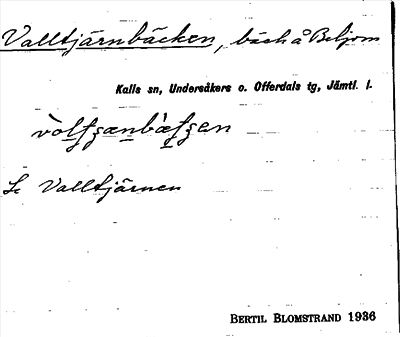 Valltjärnbäcken, bäck å Beljom
Kalls sn, Undersåkers o. Offerdals tg, Jämtl. l.
Se Valltjärnen
BERTIL BLOMSTRAND 1936